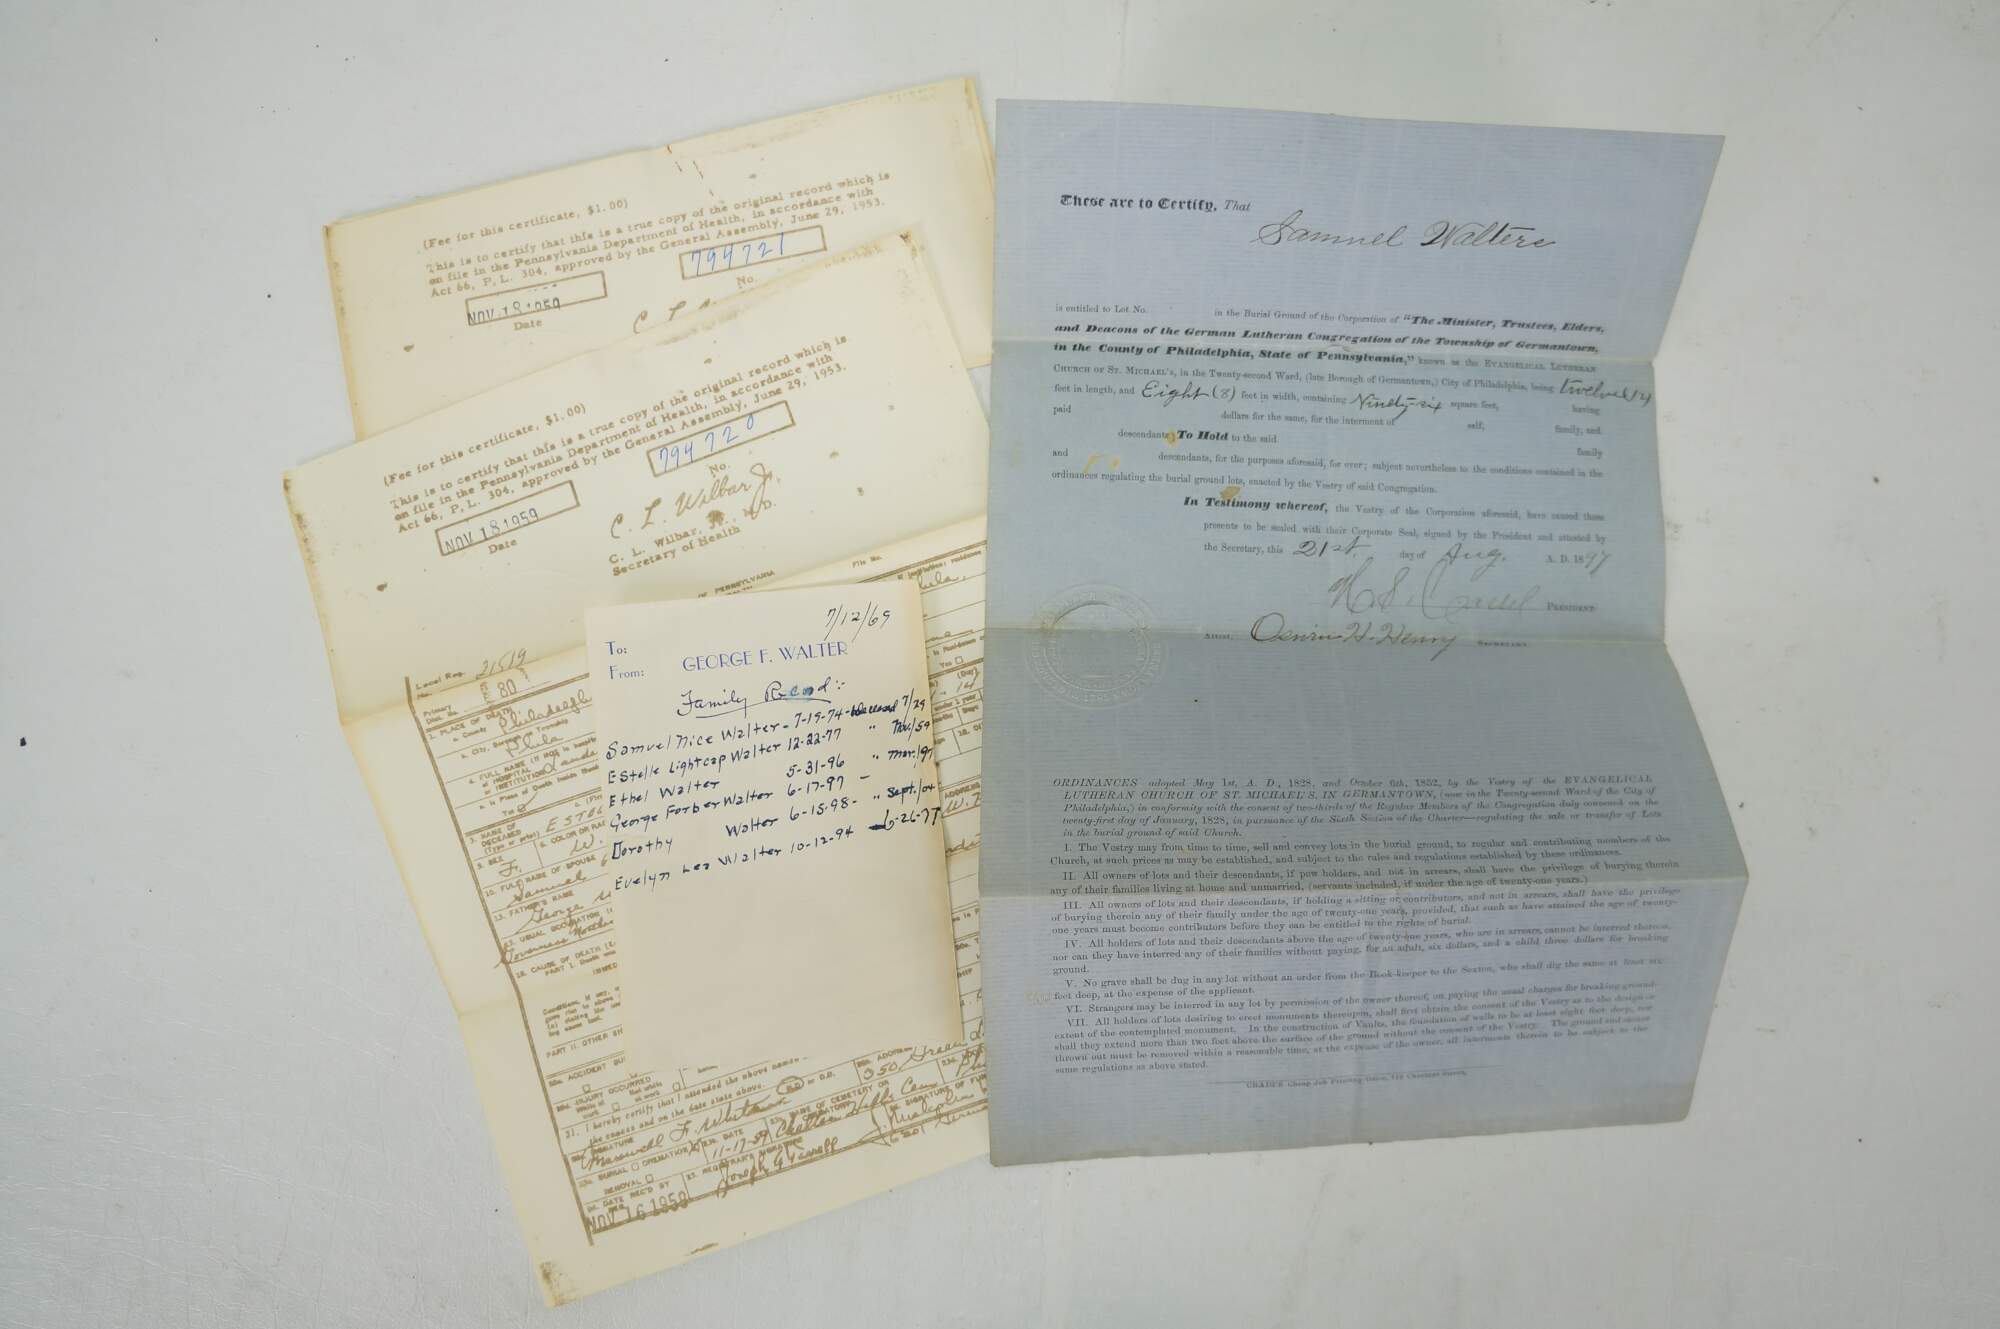 (Fee for this certificate, $1.00)
This is to certify that this is a true copy of the original record which is
on file in the Pennsylvania Department of Health, in accordance with
Act 66, P.L. 304, approved by the General Assembly, June 29, 1953.
NOV 18 1959
Date
794721
No.
C L
(Fee for this certificate, $1.00)
This is to certify that this is a true copy of the original record which is
on file in the Pennsylvania Department of Health, in accordance with
Act 66, P.L. 304, approved by the General Assembly, June 29, 1953.
NOV 18 1959
Date
794720
No.
C. L. Wilbar Jr.
C. L. Wilbar, Jr., M.D.
Secretary of Health
OF PENNSYLVANIA
File No.
Local Reg. 21519
No.
Primary
Dist. No. 80
1. PLACE OF DEATH
a. County
b. City, Borough or Township
Phila
d. FULL NAME (If NOT in
HOSPITAL
INSTITUTION
e. Is Place of Death Inside
Yes
3. NAME OF
DECEASED
(Type or print) ESTE
5. SEX
F.
6. COLOR OR RA
W.
10. FULL NAME OF SPOUSE
Samuel
13. FATHER'S NAME
George
17. USUAL OCCUPATION
18. CAUSE OF DEATH
PART I. Death
Conditions, if any,
PART II. OTHER
20a. ACCIDENT
20d. INJURY OCCURRED
While at work
Not while at work
21. I hereby certify that I attended the above named
the causes and on the date stated above.
M.D. or D.O.
22a. SIGNATURE
22b. ADDRESS
350
22c. DATE
11-17-59
23a. BURIAL CREMATION
REMOVAL
23c. NAME OF CEMETERY OR
CREMATORY
Chelten Hills Cem
24. DATE REC'D BY
REG.
NOV 16 1959
25. REGISTRAR'S SIGNATURE
Joseph
26. SIGNATURE OF FUN
Malcolm
6201
7/12/69
To:
From: GEORGE F. WALTER
Family Record:
Samuel Nice Walter - 7-19-74 - Deceased 7/29
Estelle Lightcap Walter 12-22-77 " Nov./59
Ethel Walter 5-31-96 " Mar./97
George Forber Walter 6-17-97 -
Dorothy Walter 6-15-98 - " Sept./04
Evelyn Lea Walter 10-12-94 6-26-77
These are to Certify, That
Samuel Walters
is entitled to Lot No. in the Burial Ground of the Corporation of "The Minister, Trustees, Elders,
and Deacons of the German Lutheran Congregation of the Township of Germantown,
in the County of Philadelphia, State of Pennsylvania," known as the EVANGELICAL LUTHERAN
CHURCH OF ST. MICHAEL'S, in the Twenty-second Ward, (late Borough of Germantown,) City of Philadelphia, being twelve (12)
feet in length, and Eight (8) feet in width, containing Ninety-six square feet, having
paid dollars for the same, for the interment of self, family, and
descendants; To Hold to the said family
and descendants, for the purposes aforesaid, for ever; subject nevertheless to the conditions contained in the
ordinances regulating the burial ground lots, enacted by the Vestry of said Congregation.
In Testimony whereof, the Vestry of the Corporation aforesaid, have caused these
presents to be sealed with their Corporate Seal, signed by the President and attested by
the Secretary, this 21st. day of Aug. A. D. 1897
PRESIDENT
Attest, H. Henry SECRETARY.
ORDINANCES adopted May 1st, A. D., 1828, and October 6th, 1852, by the Vestry of the EVANGELICAL
LUTHERAN CHURCH OF ST. MICHAEL'S, IN GERMANTOWN, (now in the Twenty-second Ward of the City of
Philadelphia,) in conformity with the consent of two-thirds of the Regular Members of the Congregation duly convened on the
twenty-first day of January, 1828, in pursuance of the Sixth Section of the Charter—regulating the sale or transfer of Lots
in the burial ground of said Church.
I. The Vestry may from time to time, sell and convey lots in the burial ground, to regular and contributing members of the
Church, at such prices as may be established, and subject to the rules and regulations established by these ordinances.
II. All owners of lots and their descendants, if pew holders, and not in arrears, shall have the privilege of burying therein
any of their families living at home and unmarried, (servants included, if under the age of twenty-one years.)
III. All owners of lots and their descendants, if holding a sitting or contributors, and not in arrears, shall have the privilege
of burying therein any of their family under the age of twenty-one years, provided, that such as have attained the age of twenty-
one years must become contributors before they can be entitled to the rights of burial.
IV. All holders of lots and their descendants above the age of twenty-one years, who are in arrears, cannot be interred thereon,
nor can they have interred any of their families without paying, for an adult, six dollars, and a child three dollars for breaking
ground.
V. No grave shall be dug in any lot without an order from the Book-keeper to the Sexton, who shall dig the same at least six
feet deep, at the expense of the applicant.
VI. Strangers may be interred in any lot by permission of the owner thereof, on paying the usual charges for breaking ground.
VII. All holders of lots desiring to erect monuments thereupon, shall first obtain the consent of the Vestry as to the design or
extent of the contemplated monument. In the construction of Vaults, the foundation of walls to be at least eight feet deep, nor
shall they extend more than two feet above the surface of the ground without the consent of the Vestry. The ground and stones
thrown out must be removed within a reasonable time, at the expense of the owner, all interments therein to be subject to the
same regulations as above stated.
CRAIG'S Cheap Job Printing Office, Chestnut Street.